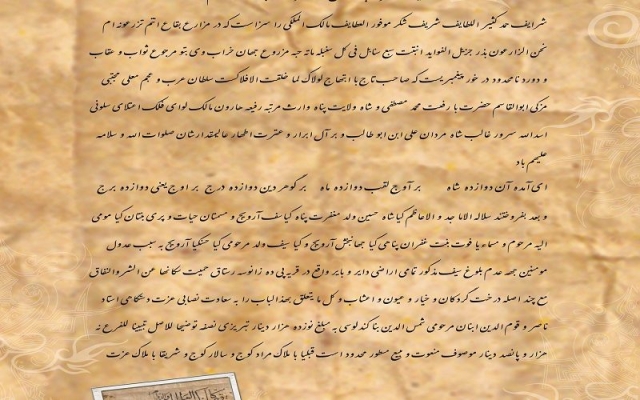 شرایف حمد کثیر اللطایف شریف شکر موفور العطایف مالک الملکی را سزاست که در مزارع بقاع اتم تزرعونه ام
نحن الزارعون بذر جزیل الفواید انبتت سبع سنابل فی کل سنبله مائه حبه مزروع جهان خراب وی بتو مرجوع ثواب و عقاب
و درود نامحدود در خور پیغمبریست که صاحب تاج با ابتهاج لولاک لما خلقت الافلاکست سلطان عرب و عجم معلی مجتبی
مزکی ابوالقاسم حضرت با رفعت محمد مصطفی و شاه ولایت پناه وارث مرتبه رفیعه هارون مالک لوای فلک اعتلای سلونی
اسدالله سرور غالب شاه مردان علی ابن ابو طالب و بر آل ابرار و عترت اطهار عالیمقدارشان صلوات الله و سلامه
علیهم باد
ای آمده آن دوازده شاه بر آوج لقب دوازده ماه بر گوهر دین دوازده درج بر اوج یعنی دوازده برج
و بعد بفروختند سلاله الاماجد و الاعاظم کیا شاه حسین ولد مغفرت پناه کیا سف آرویج و مسمتان حیات و پری بنتان کیا مومی
الیه مرحوم و مسماه یا قوت بنت غفران پناهی کیا جهانبخش آرویج و کیا سیف ولد مرحومی کیا حنکیا آرویج به سبب عدول
مومنین جهه عدم بلوغ سیف مذکور تمامی اراضی دایر و بایر واقع در قریه پی ده زانوسه رستاق حمیت سکانها عن الشر والنفاق
مع چند اصله درخت گردکان و خیار و عیون و اعشاب و کل ما یتعلق بهذالباب را به سعادت نصابی عزت دستگاهی استاد
ناصر و قوم الدین ابنان مرحومی شمس الدین بنا کندلوسی به مبلغ نوزده هزار دینار تبریزی نصفه توضیحا للاصل تبیینا للفرع نه
هزار و پانصد دینار موصوف منعوت و مبیع مسطور محدود است قبلیا با ملاک مراد کوج و سالار کوج و شرقیا با ملاک عزت